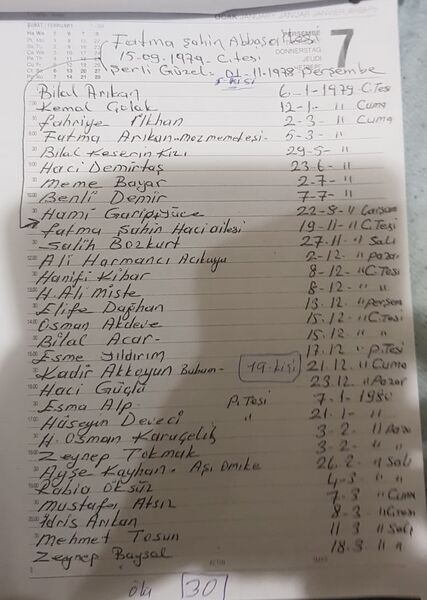 PERŞEMBE
DONNERSTAG
JEUDI
7
Fatma Şahin Abbas
15-09-1979-C.tesi
Güzel- 01-11-1978 perşembe
Bilal Arıkan 6-1-1979-C.Tesi
Kemal Çolak 12-1- " Cuma
Fahriye İlkhan 2-3- " Cuma
Fatma Arıkan-mozmemetesi- 5-3- "
Bilal Keserin Kızı 29-5- "
Haci Demirtaş 23-6- "
Meme Bayar 2-7- "
Benli Demir 7-7- "
Hami Garipiyüce 22-8- "
Fatma Şahin Haciailesi 19-11- " C.Tesi
Salih Bozkurt 27-11- " Salı
Ali Harmancı 2-12- " pazar
Hanifi Kibar 8-12- " C.Tesi
H.Ali miste 8-12- "
Elife Dağhan 13.12. " persem
Osman Akdeve 15.12. " C.Tesi
Bilal Acar- 15.12. " "
Esme Yıldırım 17.12 " p.Tesi
Kadir Akkoyun Bubam- 19-kişi 21.12 " Cuma
Haci Güçlü 23.12. " Pazar
Esma Alp- p.Tesi 7-1-1980
Hüseyin Deveci " 21-1- "
H.Osman Karaçelik 3-2- "
Zeynep Tokmak 3-2- " "
Ayşe Kayhan- Aşı Omike 26.2- " Salı
Rabia Öksüz 4-3- " "
Mustafa Atsız 7-3 " Cuma
İdris Arıkan 8-3 "
Mehmet Tosun 11.3 " Salı
Zeynep Baysal 18-3 " "
ölü 30